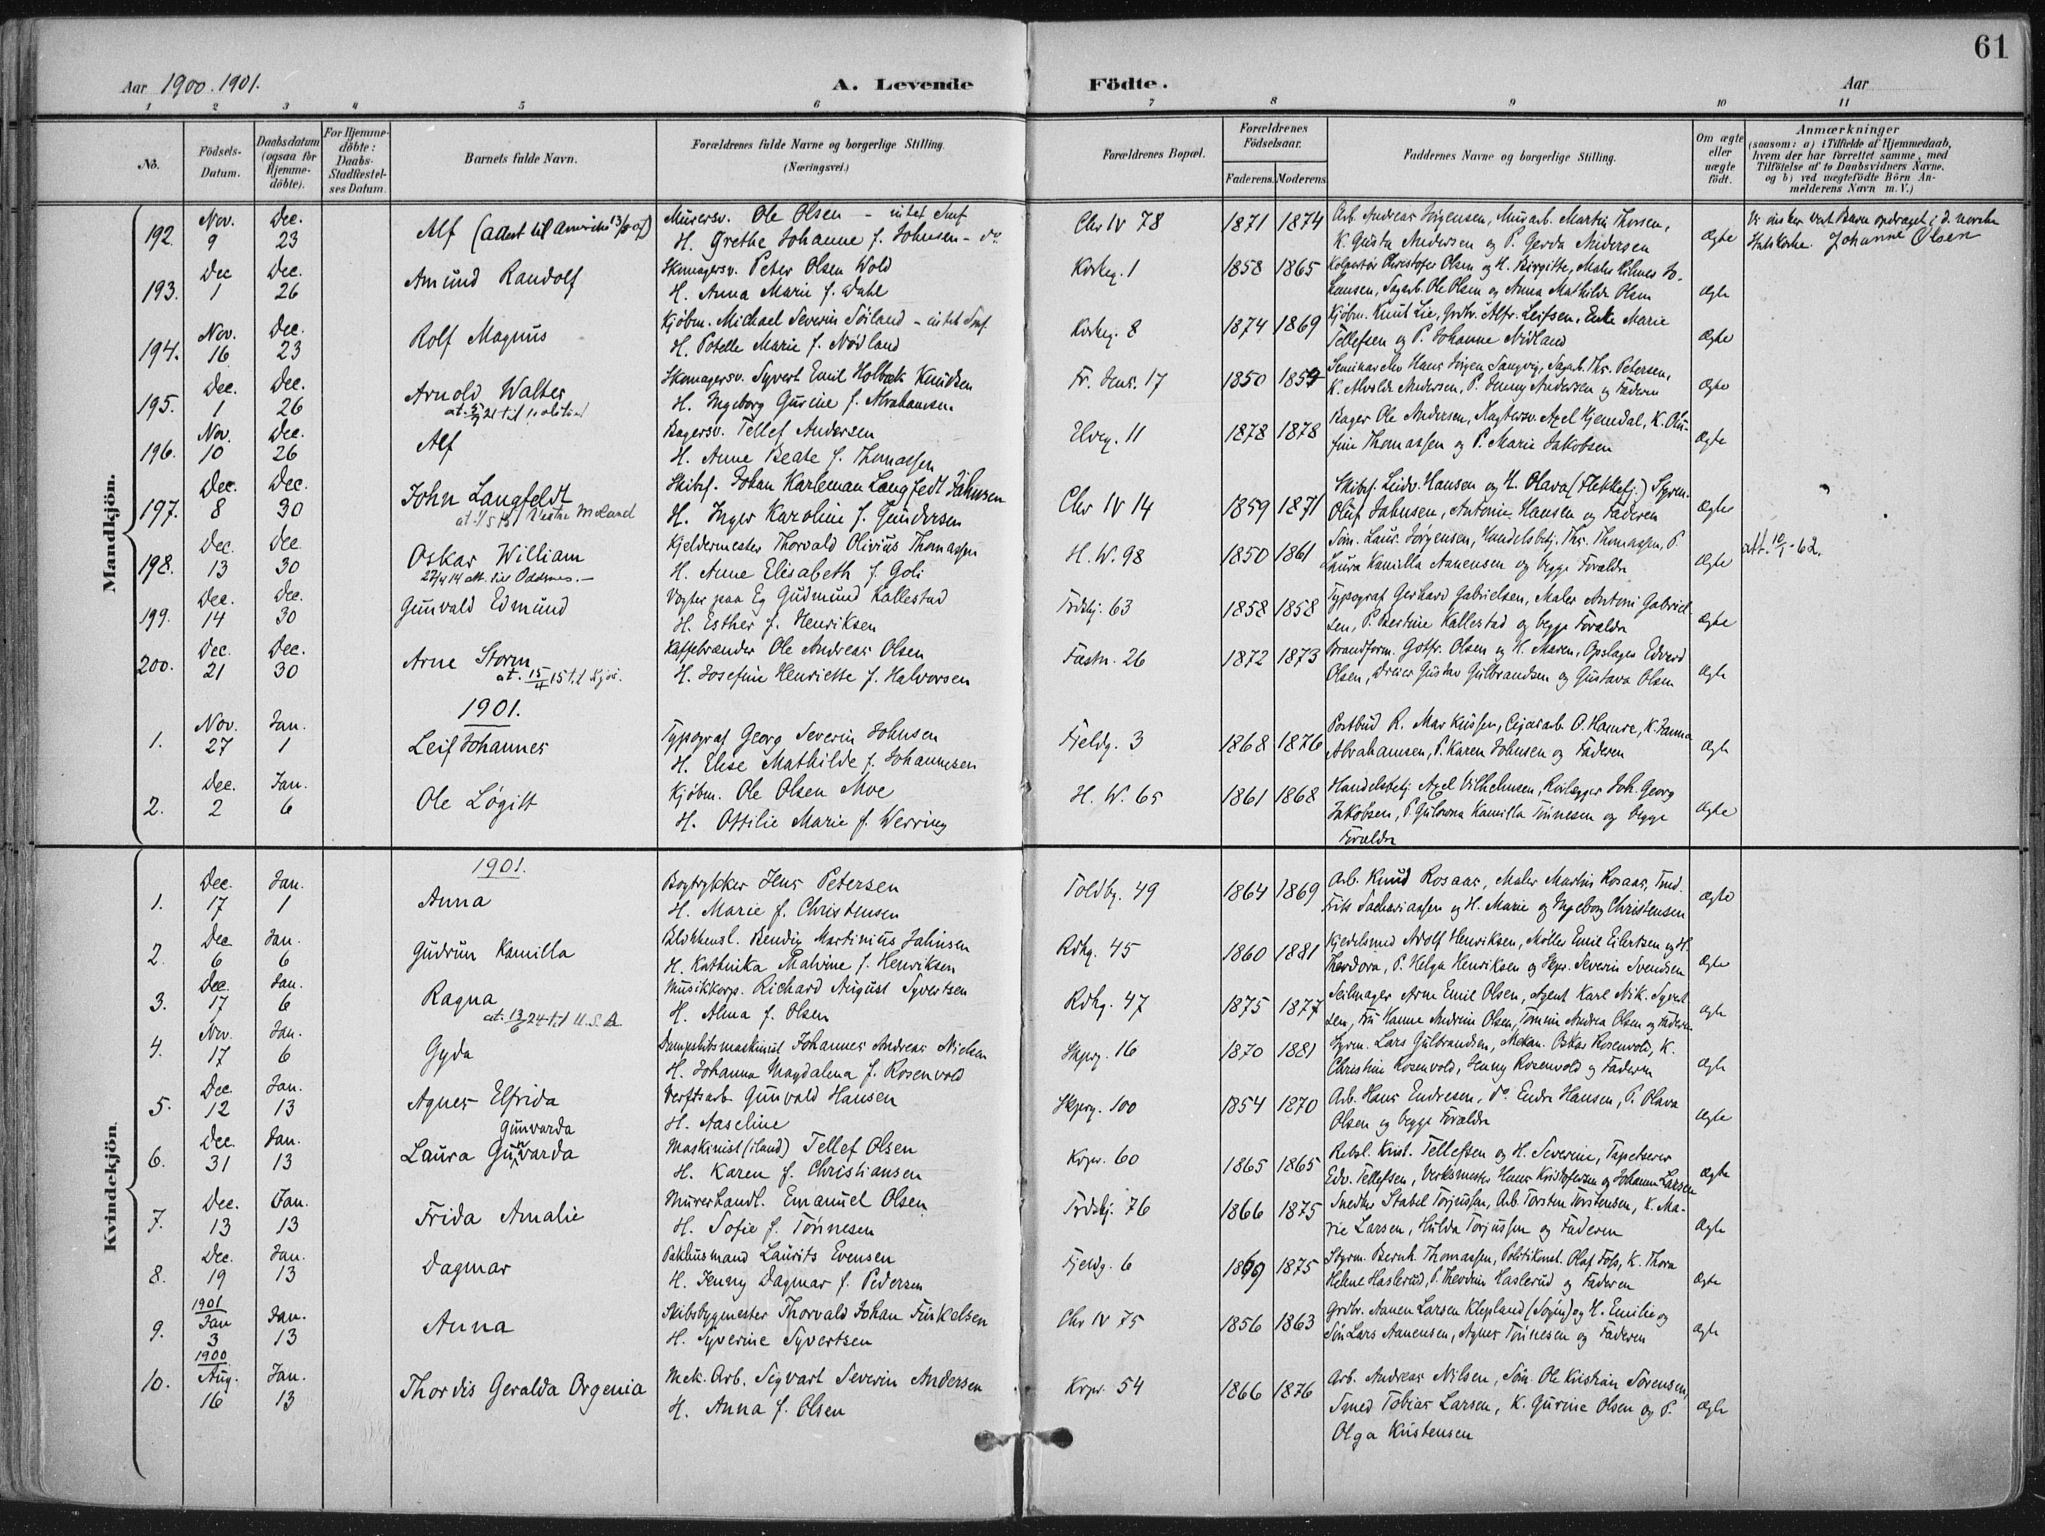 61
Aar 1900. 1901.
A. Levende Födte.
Aar
1 2 3 4 5 6 7 8 9 10 11
No.
Födsels-
Datum.
Daabsdatum
(ogsaa för
Hjemme-
döbte).
For Hjemme-
döbte:
Daabs-
Stadfestel-
ses Datum.
Barnets fulde Navn.
Forældrenes fulde Navne og borgerlige Stilling.
(Næringsvei.)
Forældrenes Bopæl.
Forældrenes
Födselsaar.
Faderens. Moderens
Faddernes Navne og borgerlige Stilling.
Om ægte
eller
uægte
födt.
Anmærkninger
(saasom: a) i Tilfælde af Hjemmedaab,
hvem der har forrettet samme, med
Tilföielse af to Daabsvidners Navne,
og b) ved uægtefödte Börn An-
melderens Navn m. V.)
Mandkjön.
192. Nov. 9 Dec. 23 Alf
Murersv. Ole Olsen – intet Smf
H. Grethe Johanne f. Johnsen – do
Chr IV 78 1871 1874
Arb. Andreas Jörgensen, Murarb. Martin Thorsen,
K. Gusta Andersen og P. Gerda Andersen
Ægte
Vi ønsker vort Barn opdraget i d. norske
Statskirke. Johanne Olsen
193. Dec 1 Dec. 26 Amund Randolf
Skomagersv. Peter Olsen Wold
H. Anna Marie f. Dahl
Kirkeg. 1 1858 1865
Kolportör Christofer Olsen og H. Birgitte, Maler Hilmer Jo-
hansen, Sagarb. Ole Olsen og Anna Mathilde Olsen
Ægte
194. Nov. 16 Dec. 23 Rolf Magnus
Kjøbm. Michael Severin Söiland – intet Smf.
H. Potelle Marie f. Nödland
Kirkeg. 8 1874 1869
Kjøbm. Knut Lie, Grdbr. Alfr. Leifsen, Enke Marie
Tellefsen og P. Johanne Nödland
Ægte
195. Dec. 1 Dec. 26 Arnold Walter
Skomagersv. Syvert Emil Holbæk Knudsen
H. Ingeborg Gurine f. Abrahamsen
1850 1859
K. Alvilde Andersen, P. Jenny Andersen og Faderen
Ægte
196. Nov. 10 Dec. 26 Alf
Bagersv. Tellef Andersen
H. Anne Beate f. Thomassen
Elveg. 11 1878 1878
Bager Ole Andersen, Slagtersv. Axel Hjemdal, K. Olu-
fine Thomassen og P. Marie Jakobsen
Ægte
197. Dec. 8 Dec. 30 John Langfeldt
Skibsf. Johan Karleman Langfedt Jahnsen
H. Inger Karoline f. Gundersen
Chr IV 14 1859 1871
Skibsf. Ludv. Hansen og H. Olava (Flekkefj.) Styrm.
Oluf Jahnsen, Antonie Hansen og Faderen
Ægte
198. Dec. 13 Dec 30 Oskar William
27/4 14 att. til Oddernes. –
Kjeldermester Thorvald Olivius Thomassen
H. Anne Elisabeth f. Goli
H. W. 98 1850 1861
Söm. Laur. Jörgensen, Handelsbetj. Thr. Thomassen, P.
Laura Kamilla Aanensen og begge Foraeldre
Ægte
att. 10/1 - 62.
199. Dec. 14 Dec. 30 Gunvald Edmund
Vogter paa Eg Gudmund Kallestad
H. Esther f. Henriksen
Frdskj. 63 1858 1858
Typograf Gerhard Gabrielsen, Maler Antoni Gabriel-
sen, P. Bertine Kallestad og begge Foraeldre
Ægte
200. Dec. 21 Dec. 30 Arne Storm
Kaffebrænder Ole Andreas Olsen
H. Josefine Henriette f. Halvorsen
Fæstn. 26 1872 1873
Brandform. Gotfr. Olsen og H. Maren, Opslager Edvard
Olsen, Dreier Gustav Gulbrandsen og Gustava Olsen
Ægte
1901.
1. Nov. 27 Jan. 1 Leif Johannes
Typograf Georg Severin Johnsen
H. Elise Mathilde f. Johannesen
Fjeldg. 3 1868 1876
Postbud R. Markussen, Cigararb. O. Hamre, K. Fanna
Abrahamsen, P. Karen Johnsen og Faderen
Ægte
2. Dec. 2 Jan. 6 Ole Løgitt
Kjøbm. Ole Olsen Moe
H. Ottilie Marie f. Werring
H. W. 65 1861 1868
Handelsbetj. Axel Vilhelmsen, Rörlægger Joh. Georg
Jakobsen, P. Gulowna Kamilla Tönnesen og begge
Foraeldre
Ægte
Kvindekjön.
1901.
1. Dec. 17 Jan. 1 Anna
Bogtrykker Jens Petersen
H. Marie f. Christensen
Toldbg. 49 1864 1869
Arb. Knud Rosaas, Maler Martin Rosaas, Tmd.
Frits Sachariassen og H. Marie og Ingeborg Christensen
Ægte
2. Dec 6 Jan. 6 Gudrun Kamilla
Blokkensl. Bendix Martinius Jahnsen
H. Kathinka Malvine f. Henriksen
Rdhg. 45 1860 1881
Kjedelsmed Adolf Henriksen, Møller Emil Eilertsen og H.
Theodora, P. Helga Henriksen og Skpr. Severin Svendsen
Ægte
3. Dec 17 Jan. 6 Ragna
at. 13/6 24 til U.S.A.
Musikkorp. Richard August Syvertsen
H. Alma f. Olsen
Rdhg. 47 1875 1877
Seilmager Arne Emil Olsen, Agent Karl Nik. Syvert-
sen, Fru Hanne Andrine Olsen, Tomine Andrea Olsen og Faderen
Ægte
4. Nov. 17 Jan. 6 Gyda
Dampskibsmaskinist Johannes Andreas Nielsen
H. Johanna Magdalena f. Rosenvold
Skprg. 16 1870 1881
Styrm. Lars Gulbrandsen, Mekan. Oskar Rosenvold, K.
Christine Rosenvold, Jenny Rosenvold og Faderen
Ægte
5. Dec 12 Jan. 13 Agnes Elfrida
Verftsarb. Gunvald Hansen
H. Aaseline
Skprg. 100 1854 1870
Arb. Hans Endresen, do Endre Hansen, P. Olava
Olsen og begge Foraeldre
Ægte
6. Dec. 31 Jan. 13 Gunvarda
Laura Gunvarda
Maskinist (iland) Tellef Olsen
H. Karen f. Christiansen
Krpr. 60 1865 1865
Rebsl. Krist. Tellefsen og H. Severine, Tapetserer
Edv. Tellefsen, Verksmester Hans Kristofersen og Johanne Larsen
Ægte
7. Dec. 13 Jan. 13 Frida Amalie
Murerhandl. Emanuel Olsen
H. Sofie f. Tönnesen
Frdskj. 76 1866 1875
Smedm. Stabel Torjussen, Arb. Torsten Torstensen, K. Ma-
rie Larsen, Hulda Torjussen og Faderen
Ægte
8. Dec. 19 Jan. 13 Dagmar
Pakhusmand Laurits Evensen
H. Jenny Dagmar f. Pedersen
Fjeldg. 6 1869 1875
Styrm. Bernh. Thomassen, Politikonst. Olaf Foss, K. Thora
Helene Haslerud, P. Theodine Haslerud og Faderen
Ægte
9. 1901 Jan 3 Jan. 13 Anna
Skibsbygmester Thorvald Johan Finkelsen
H. Syverine Syvertsen
Chr IV 75 1856 1863
Grdbr. Aanen Larsen Klepland (Søgne) og H. Emilie og
Søn Lars Aanensen, Agnes Tönnesen og Faderen
Ægte
10. 1900 Aug. 16 Jan. 13 Thordis Geralda Orgenia
Mek. Arb. Sigvart Severin Andersen
H. Anna f. Olsen
Krpr. 54 1866 1876
Arb. Andreas Nilsen, Söm. Ole Kristian Sörensen,
Smed Tobias Larsen, K. Gurine Olsen og P.
Olga Kristensen
Ægte